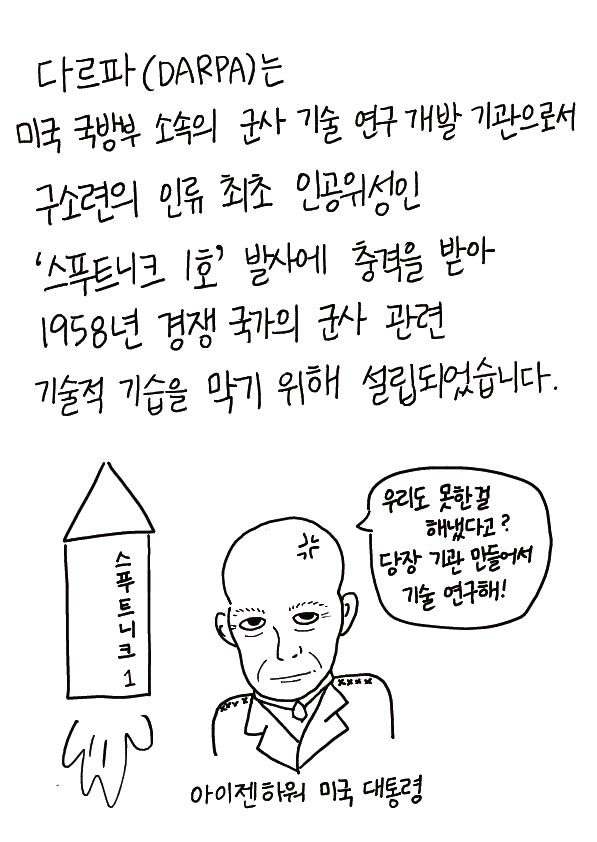 다르파(DARPA)는
미국 국방부 소속의 군사 기술 연구 개발 기관으로서
구소련의 인류 최초 인공위성인
‘스푸트니크 1호’ 발사에 충격을 받아
1958년 경쟁 국가의 군사 관련
기술적 기습을 막기 위해 설립되었습니다.
스푸트니크 1
우리도 못한걸
해냈다고?
당장 기관 만들어서
기술 연구해!
아이젠하워 미국 대통령